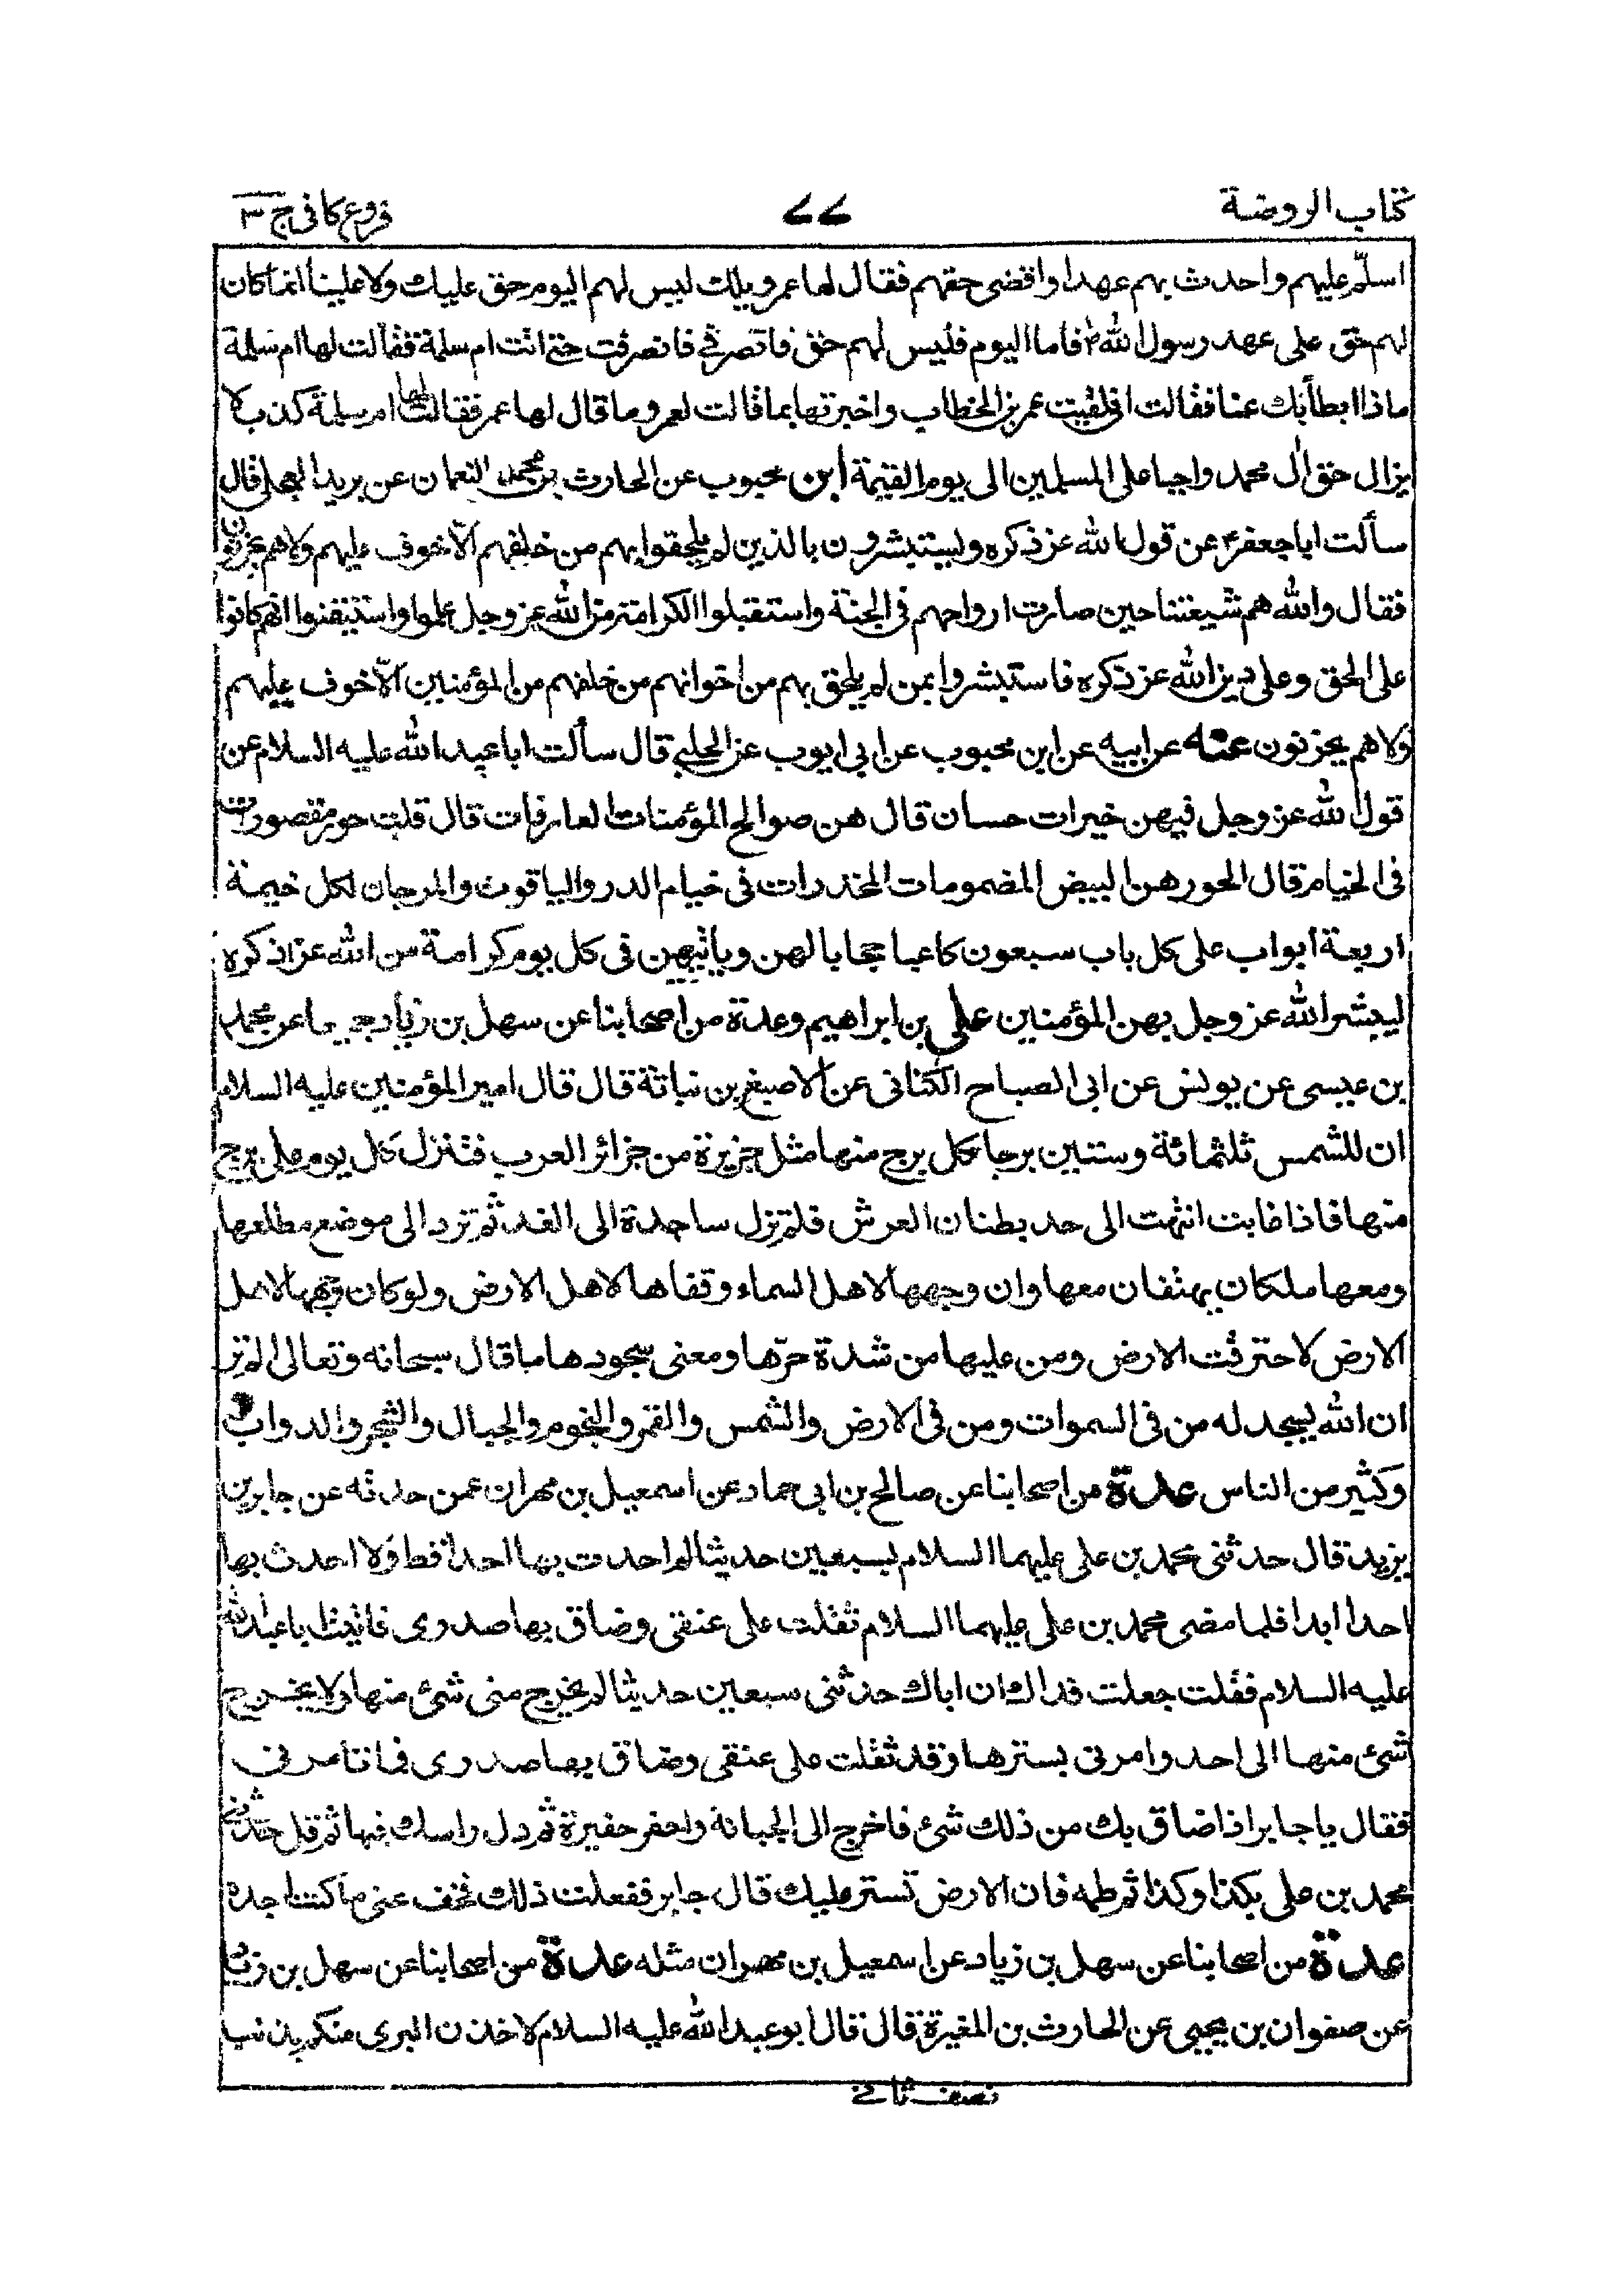 كتاب الروضة
٧٧
فروع كافى ج ٣
اسلّم عليهم واحدث بهم عهدا واقضى حقهم فقال لها عمر ويلك ليس لهم اليوم حق عليك ولا علينا انما كان
لهم حق على عهد رسول الله ص فاما اليوم فليس لهم حق فانصرفي فانصرفت حتى اتت ام سلمة فقالت لها ام سلمة
ماذا ابطأ بك عنا فقالت انى لقيت عمر بن الخطاب واخبرتها بما قالت لعمر وما قال لها عمر فقالت لها ام سلمة كذب لا
يزال حق ال محمد واجبا على المسلمين الى يوم القيمة ابن محبوب عن الحارث بن محمد النعمان عن بريد العجلى قال
سألت ابا جعفر ع عن قول الله عز ذكره ويستبشرون بالذين لم يلحقوا بهم من خلفهم الّا خوف عليهم ولا هم يحزنون
فقال والله هم شيعتنا حين صارت ارواحهم فى الجنة واستقبلوا الكرامة من الله عز وجل علموا واستيقنوا انهم كانوا
على الحق وعلى دين الله عز ذكره فاستبشروا بمن لم يلحق بهم من اخوانهم من خلفهم من المؤمنين الّا خوف عليهم
ولا هم يحزنون عنه عن ابيه عن ابن محبوب عن ابى ايوب عن الحلبي قال سألت ابا عبد الله عليه السلام عن
قول الله عز وجل فيهن خيرات حسان قال هن صوالح المؤمنات العارفات قال قلت حور مقصورات
فى الخيام قال الحور هن البيض المضمومات المخدرات فى خيام الدر والياقوت والمرجان لكل خيمة
اربعة ابواب على كل باب سبعون كاعبا حجابا لهن ويأتيهن فى كل يوم كرامة من الله عز ذكره
ليبشر الله عز وجل بهن المؤمنين على بن ابراهيم وعدة من اصحابنا عن سهل بن زياد جميعا عن محمد
بن عيسى عن يونس عن ابى الصباح الكنانى عن الاصبغ بن نباتة قال قال امير المؤمنين عليه السلام
ان للشمس ثلثمائة وستين برجا كل برج منها مثل جزيرة من جزائر العرب فتنزل كل يوم على برج
منها فاذا غابت انتهت الى حد بطنان العرش فلم تزل ساجدة الى الغد ثم ترد الى موضع مطلعها
ومعها ملكان يهتفان معها وان وجهها لاهل السماء وقفاها لاهل الارض ولو كان وجهها لاهل
الارض لاحترقت الارض ومن عليها من شدة حرّها ومعنى سجودها ما قال سبحانه وتعالى الم تر
ان الله يسجد له من فى السموات ومن فى الارض والشمس والقمر والنجوم والجبال والشجر والدواب
وكثير من الناس عدة من اصحابنا عن صالح بن ابى حماد عن اسمعيل بن مهران عمن حدثه عن جابر بن
يزيد قال حدثنى محمد بن على عليهما السلام بسبعين حديثا لم احدث بها احدا قط ولا احدث بها
احدا ابدا فلما مضى محمد بن على عليهما السلام ثقلت على عنقى وضاق بها صدرى فاتيت ابا عبد الله
عليه السلام فقلت جعلت فداك ان اباك حدثنى سبعين حديثا لم يخرج منى شئ منها ولا يخرج
شئ منها الى احد وامرنى بسترها وقد ثقلت على عنقى وضاق بها صدرى فما تامرنى
فقال يا جابر اذا ضاق بك من ذلك شئ فاخرج الى الجبانة واحفر حفيرة ثم دل راسك فيها ثم قل حدثنى
محمد بن على بكذا وكذا ثم طمه فان الارض تستر عليك قال جابر ففعلت ذلك فخف عنى ما كنت اجده
عدة من اصحابنا عن سهل بن زياد عن اسمعيل بن مهران مثله عدة من اصحابنا عن سهل بن زياد
عن صفوان بن يحيى عن الحارث بن المغيرة قال قال ابو عبد الله عليه السلام لاخذن البرى منكم بذنب
نصف ثانى